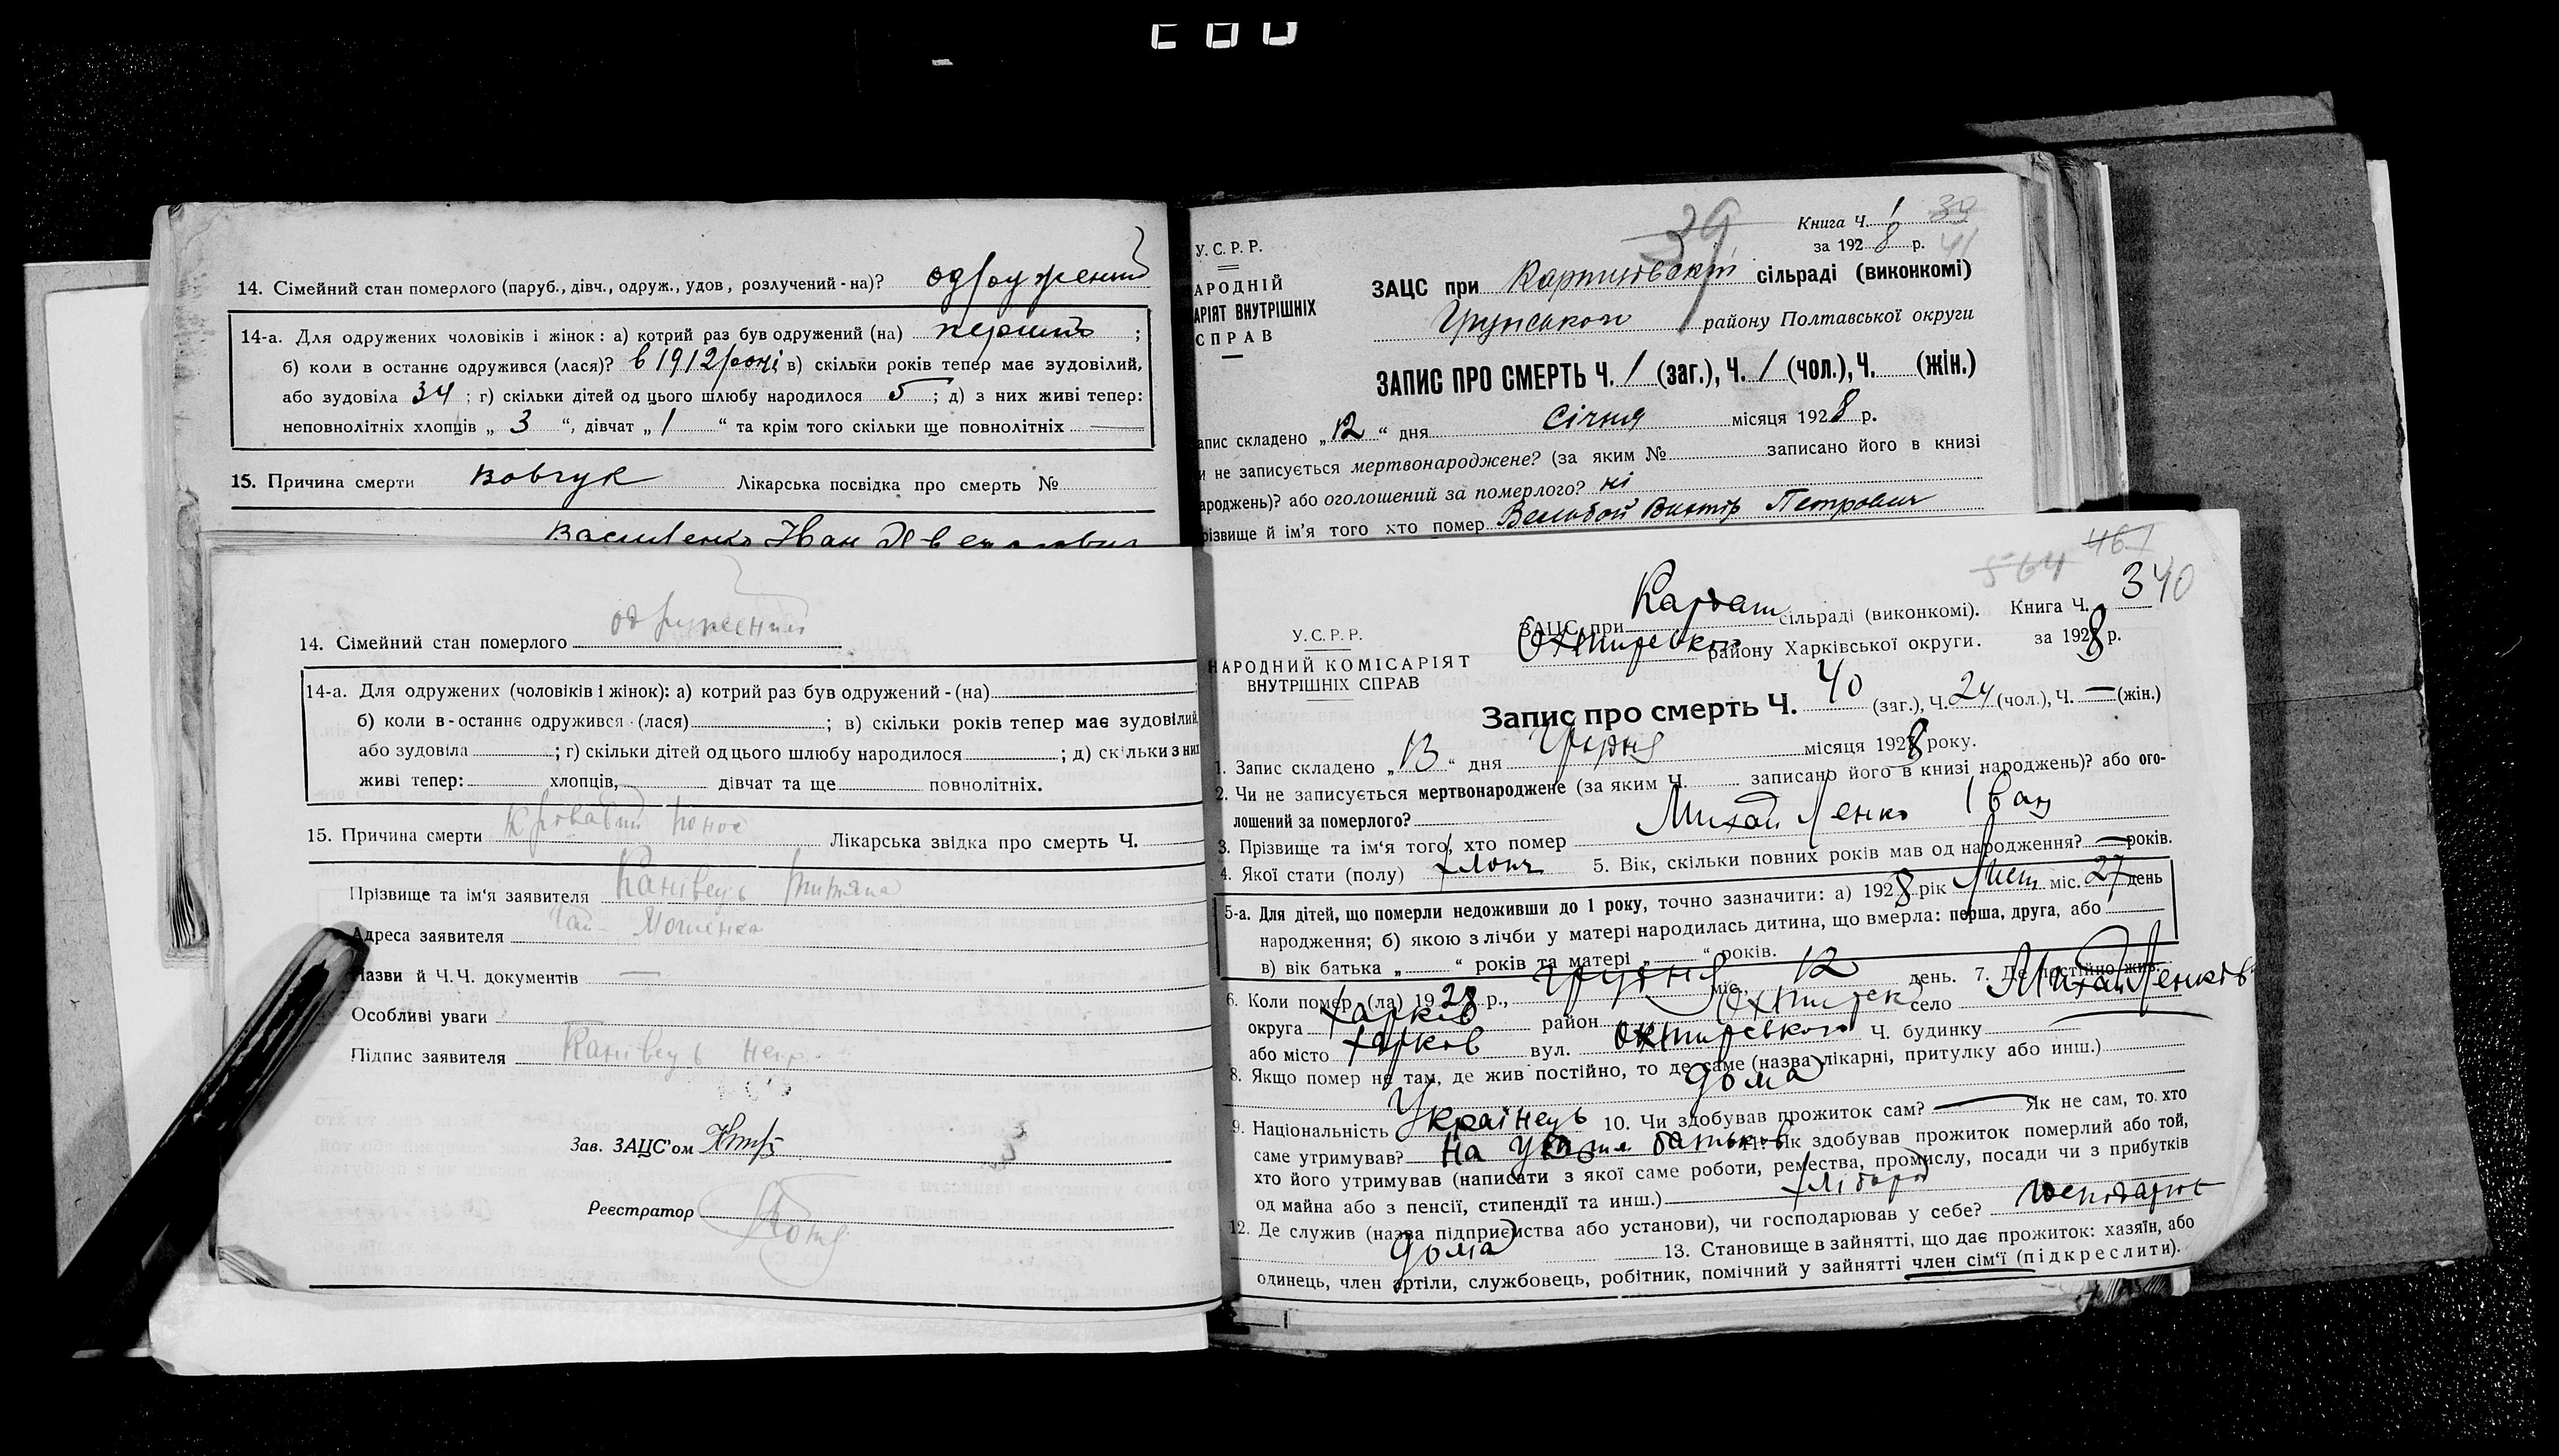 14. Сімейний стан померлого (паруб., дівч., одруж., удов, розлучений - на)? одружений
14-а. Для одружених чоловіків і жінок: а) котрий раз був одружений (на) перший ;
б) коли в останнє одружився (лася)? в 1912 році в) скільки років тепер має зудовілий,
або зудовіла 34 ; г) скільки дітей од цього шлюбу народилося 5 ; д) з них живі тепер:
неповнолітніх хлопців „ 3 “, дівчат „ 1 “ та крім того скільки ще повнолітніх
15. Причина смерти Вовчук Лікарська посвідка про смерть №
Василенко Іван
39
Книга Ч. 1
за 1928 р. 41
У.С.Р.Р.
АРОДНІЙ
АРІЯТ ВНУТРІШНІХ
СПРАВ
ЗАЦС при сільраді (виконкомі)
Грунського району Полтавської округи
ЗАПИС ПРО СМЕРТЬ Ч. 1 (заг.), Ч. 1 (чол.), Ч. (жін.)
апис складено „12“ дня Січня місяця 1928 р.
и не записується мертвонароджене? (за яким № записано його в книзі
ароджень)? або оголошений за померлого? ні
різвище й ім'я того хто помер Петрович
14. Сімейний стан померлого одружений
14-а. Для одружених (чоловіків і жінок): а) котрий раз був одружений - (на)
б) коли в - останнє одружився - (лася) ; в) скільки років тепер має зудовілий
або зудовіла ; г) скільки дітей од цього шлюбу народилося ; д) скільки з них
живі тепер: хлопців, дівчат та ще повнолітніх.
15. Причина смерти Крівавий понос Лікарська звідка про смерть Ч.
Прізвище та ім'я заявителя Канівець
Адреса заявителя
Назви й Ч.Ч. документів —
Особливі уваги
Підпис заявителя Канівець
Зав. ЗАЦС'ом
Реєстратор
564 461
340
У.С.Р.Р.
НАРОДНИЙ КОМІСАРІЯТ
ВНУТРІШНІХ СПРАВ
ЗАЦС при сільраді (виконкомі). Книга Ч.
Охтирського району Харківської округи. за 1928 р.
Запис про смерть Ч. 40 (заг.), Ч. 24 (чол.), Ч. — (жін.)
1. Запис складено „13“ дня Грудня місяця 1928 року.
2. Чи не записується мертвонароджене (за яким Ч. записано його в книзі народжень)? або ого-
лошений за померлого?
3. Прізвище та ім'я того, хто помер Михайленко Іван
4. Якої стати (полу) хлопч 5. Вік, скільки повних років мав од народження? — років.
5-а. Для дітей, що померли недоживши до 1 року, точно зазначити: а) 1928 рік Лист міс. 27 день
народження; б) якою з лічби у матері народилась дитина, що вмерла: перша, друга, або
в) вік батька „ “ років та матері „ “ років.
6. Коли помер (ла) 1928 р., Грудня міс., 12 день. 7. Де постійно жив:
округа Харків район Охтирськ село Михайленків
або місто Харков вул. Охтирського Ч. будинку
8. Якщо помер не там, де жив постійно, то де саме (назва лікарні, притулку або инш.)
дома
9. Національність Українець 10. Чи здобував прожиток сам? — Як не сам, то хто
саме утримував? На батьков 11. Як здобував прожиток померлий або той,
хто його утримував (написати з якої саме роботи, ремества, промислу, посади чи з прибутків
од майна або з пенсії, стипендії та инш.) хлібороб
12. Де служив (назва підприємства або установи), чи господарював у себе?
дома 13. Становище в зайнятті, що дає прожиток: хазяїн, або
одинець, член артіли, службовець, робітник, помічний у зайнятті член сім'ї (підкреслити).